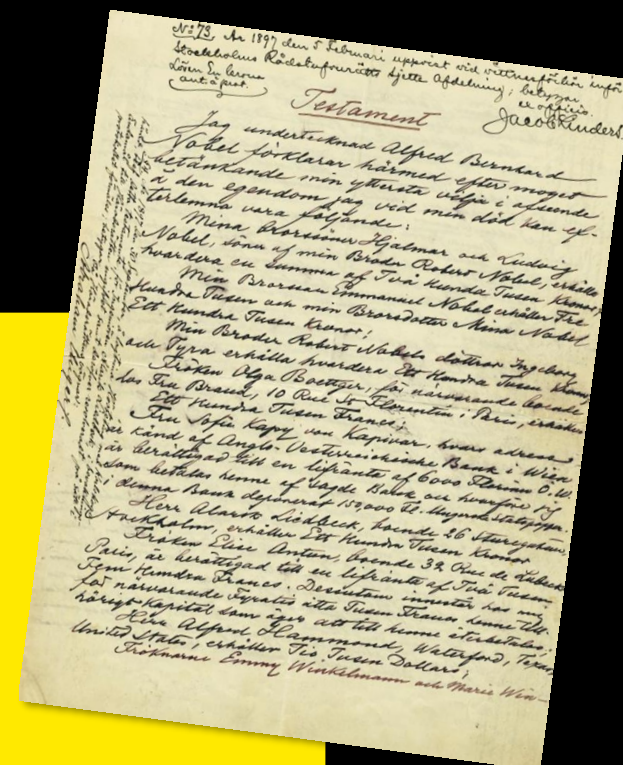 No 73. År 1897 den 5 Februari uppvist vid vittnesförhör inför
Stockholms Rådstufvurätts Sjette Afdelning; betygar
Lösen En krona ex officio
Testament
Jag undertecknad Alfred Bernhard
Nobel förklarar härmed efter moget
betänkande min yttersta vilja i afseende
å den egendom jag vid min död kan ef-
terlemna vara följande:
Mina brorsöner Hjalmar och Ludvig
Nobel, söner af min Broder Robert Nobel, erhålla
hvardera en summa af Två Hundra Tusen Kronor;
Min Brorson Emmanuel Nobel erhåller Tre
Hundra Tusen och min Brorsdotter Mina Nobel
Ett Hundra Tusen Kronor;
Min Broder Robert Nobels döttrar Ingeborg
och Tyra erhålla hvardera Ett Hundra Tusen Kronor;
Fröken Olga Boettger, för närvarande boende
hos Fru Brand, 10 Rue St Florentin i Paris, erhåller
Ett Hundra Tusen Francs;
Fru Sofie Kapy von Kapivar, hvars adress
är känd af Anglo-Oesterreichische Bank i Wien
är berättigad till en lifränta af 6000 Florins Ö.W.
som betalas henne af sagde Bank och hvarföre jag
i denna Bank deponerat 150,000 Fl. i Ungerska statspapper.
Herr Alarik Liedbeck, boende 26 Sturegatan,
Stockholm, erhåller Ett Hundra Tusen Kronor
Fröken Elise Antun, boende 32 Rue de Lubeck
Paris, är berättigad till en lifränta af Två Tusen
Fem Hundra Francs. Desutom innestår hos mig
för närvarande Fyratio åtta Tusen Francs henne till-
hörigt kapital som äger att till henne återbetalas;
Herr Alfred Hammond, Waterford, Texas,
United States, erhåller Tio Tusen Dollars;
Fröknarne Emmy Winkelmann och Marie Win-